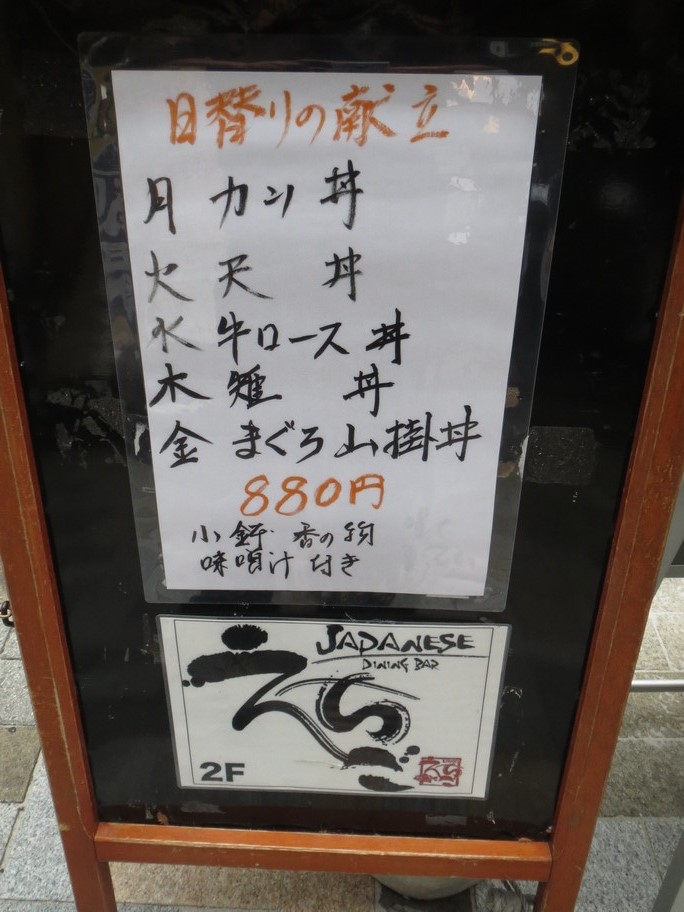 日替りの献立
月 カツ 丼
火 天 丼
水 牛ロース 丼
木 雉 丼
金 まぐろ山掛丼
880円
小鉢 香の物
味噌汁 付き
JAPANESE
DINING BAR
2F